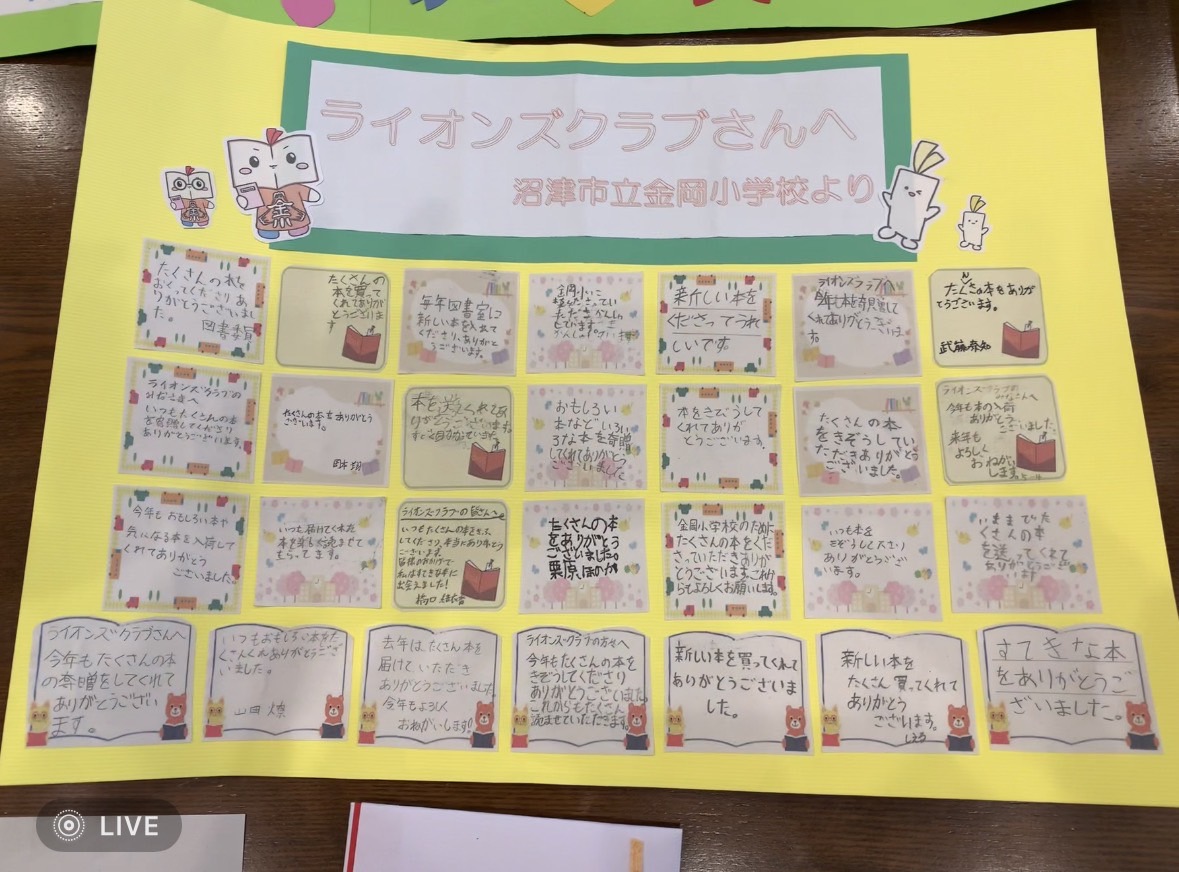 ライオンズクラブさんへ
沼津市立金岡小学校より
金
たくさんの本を
おくってくださりあ
りがとうございまし
た。
図書委員
たくさんの
本を買って
くれてありが
とうございま
す
毎年図書室に
新しい本を入れて
くださり、ありがと
うございます。
金岡小に
新しい本を
くださってうれ
しいです
ライオンズクラブ
今年も本を寄贈して
くれてありがとうございま
す。
たくさんの本をありが
とうございます。
ライオンズクラブの
みなさまへ
いつもたくさんの本
を寄贈してくださり
ありがとうございます。
たくさんの本をありがとう
ございます。
本を送ってくれてあ
りがとうございます。
おもしろい
本などいろい
ろな本を寄贈
してくれてありがと
うございました
本をきぞうして
くれてありが
とうございます。
たくさんの本
をきぞうしてい
ただきありがとう
ございました。
ライオンズクラブの
みなさんへ
今年も本の入荷
ありがとう
ございました。
来年も
よろしく
おねがい
します。
今年もおもしろい本や
気になる本を入荷して
くれてありがとう
ございました。
いつも届けてくれた
本を楽しく読ませて
もらってます。
ライオンズクラブの皆さんへ
いつもたくさんの本をきぞう
してくださり、本当にありがとう
ございます。
皆様のおかげで
私はすてきな本に
出会えました!
たくさんの本
をありがとう
ございました。
栗原ほのか
金岡小学校のために
たくさんの本をくだ
さっていただきありが
とうございます。これか
らもよろしくお願いします。
いつも本を
きぞうしてくださり
ありがとうござい
ます。
いままでた
くさんの本
を送ってくれて
ありがとうござい
ます
ライオンズクラブさんへ
今年もたくさんの本
の寄贈をしてくれて
ありがとうござい
ます。
いつもおもしろい本をた
くさんくれありがとうござ
いました。
去年はたくさん本を
届けていただき
ありがとうございました。
今年もよろしく
おねがいします!
ライオンズクラブの方々へ
今年もたくさんの本を
きぞうしてくださり
ありがとうございました。
これからもたくさん
読ませていただきます。
新しい本を買ってくれて
ありがとうございま
した。
新しい本を
たくさん買ってくれて
ありがとう
ございます。
すてきな本
をありがとうご
ざいました。
LIVE